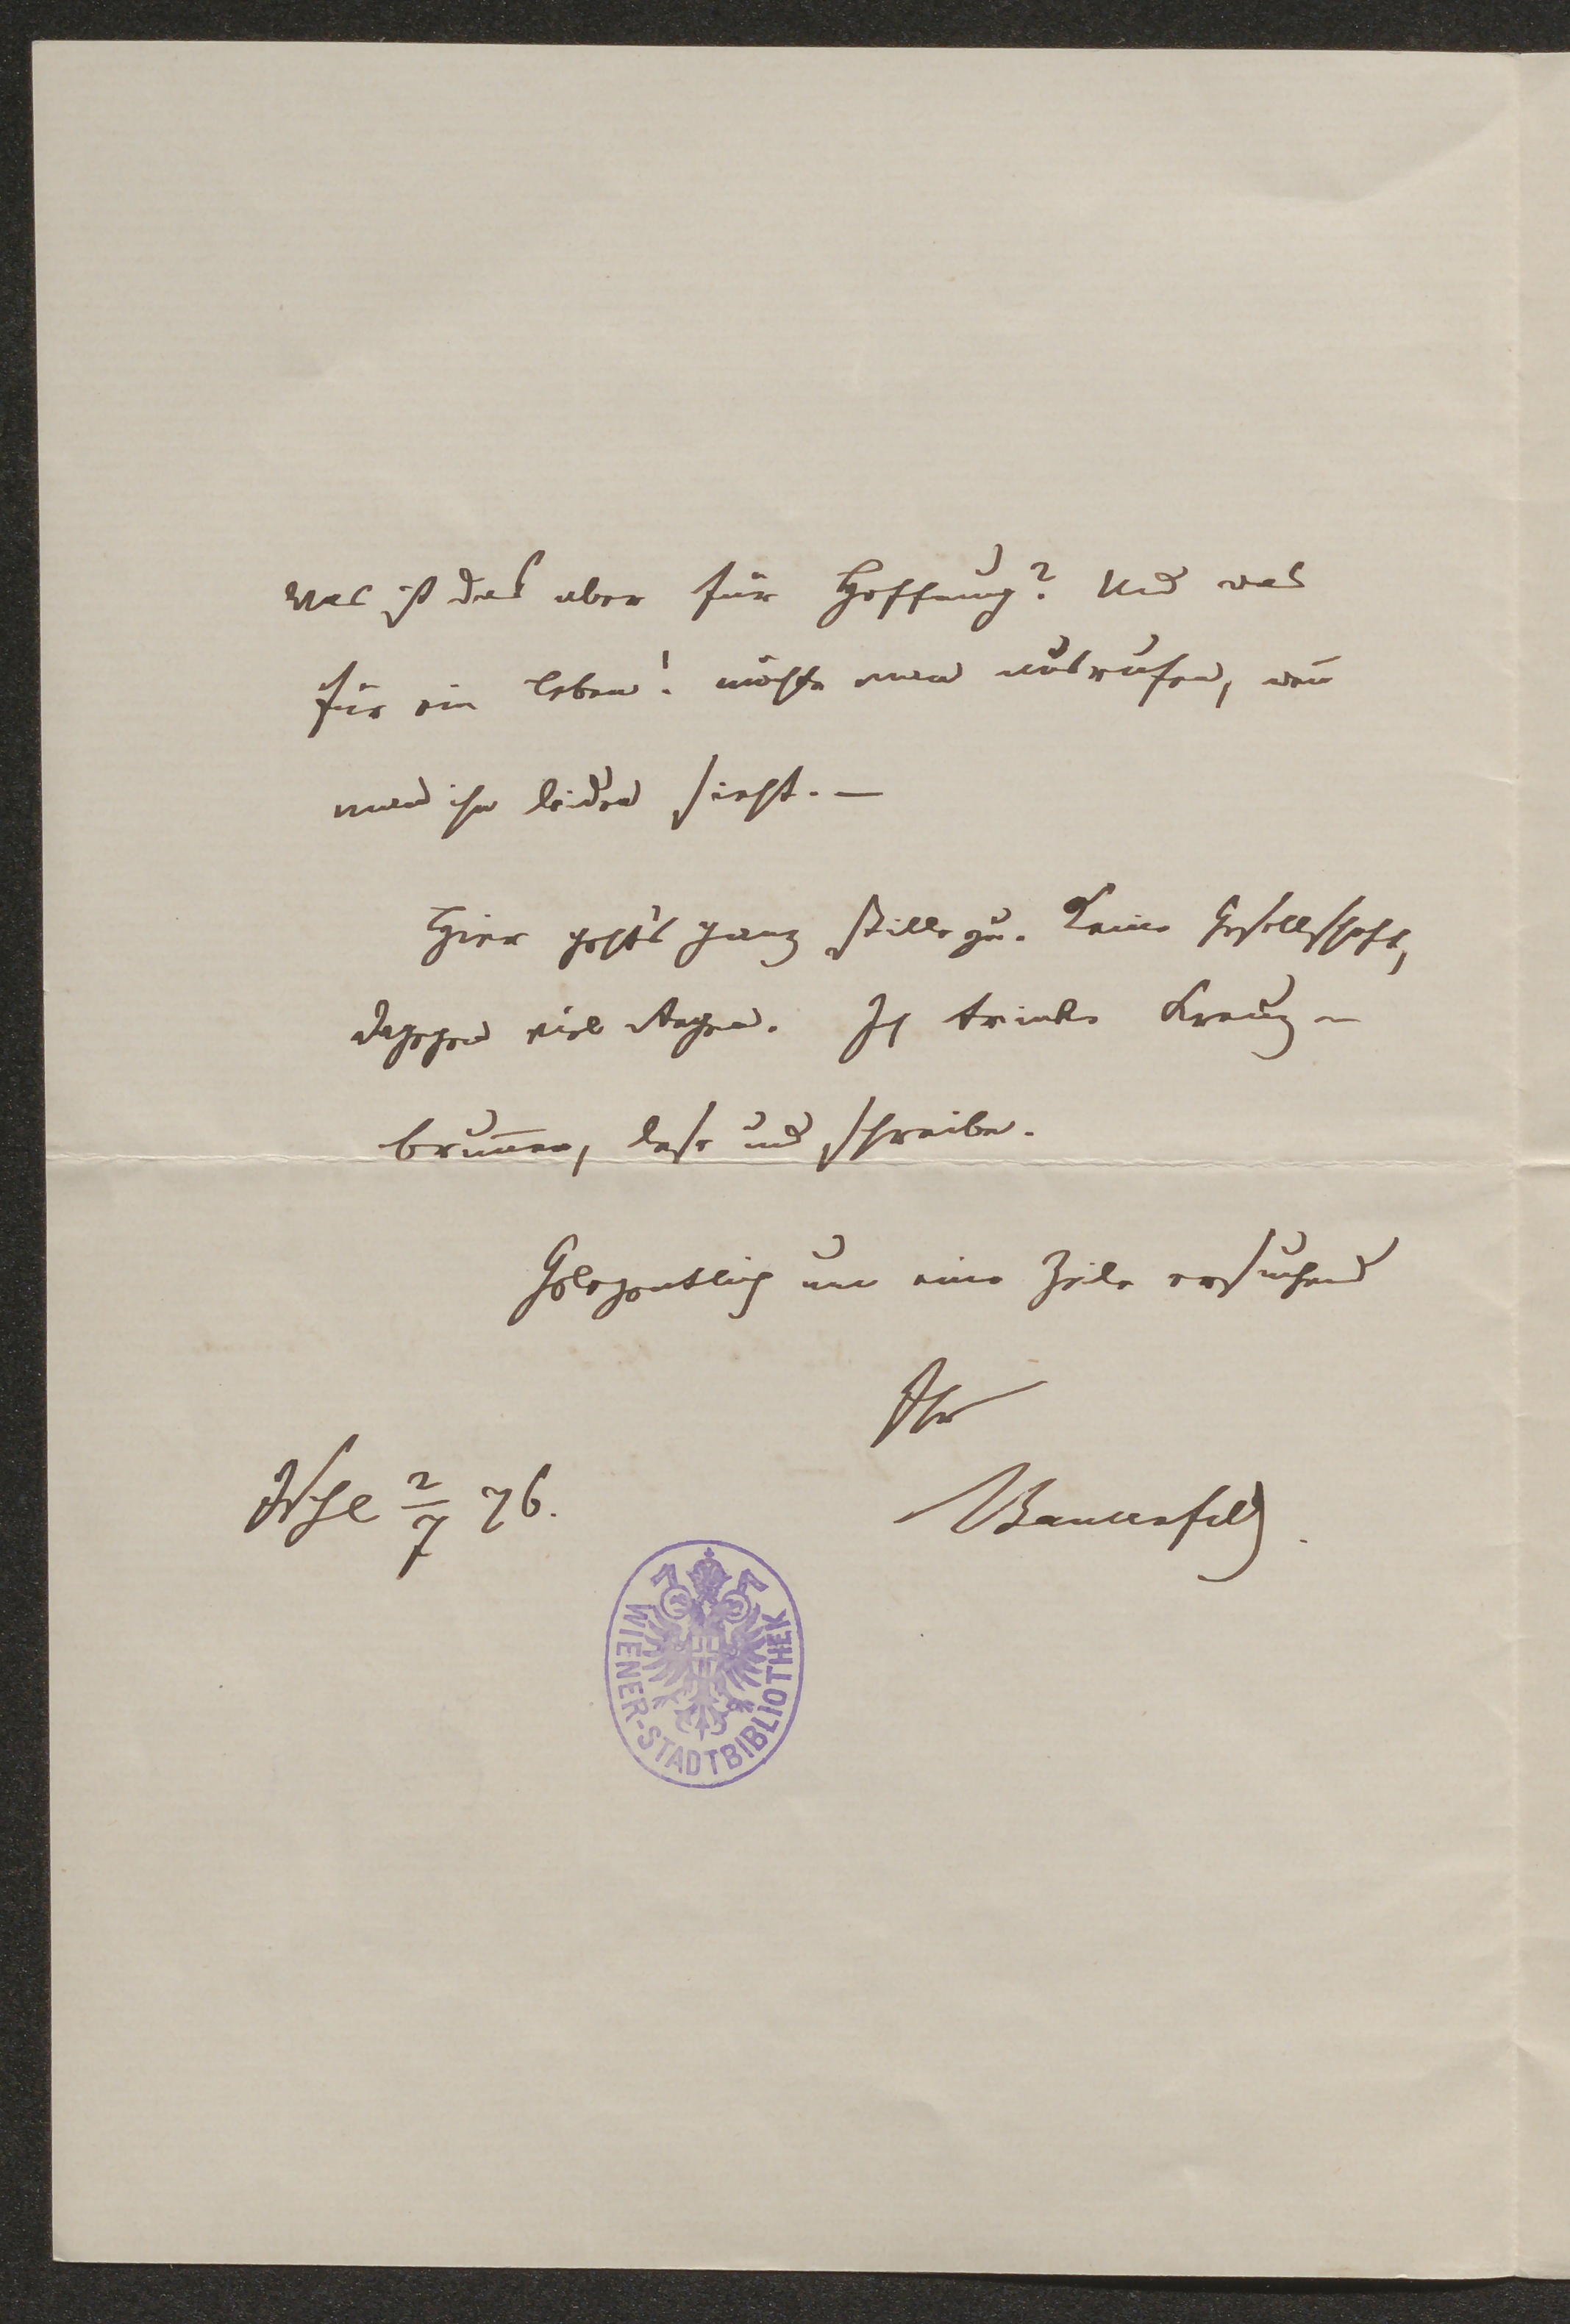 Was ist das aber für Hoffnung? Und was
für ein Leben! möchte man ausrufen, wen̄
man ihn leiden sieht. —
Hier geht's ganz stille zu. Keine Gesellschaft,
dagegen viel Regen. Ich trinke Kreuz-
brun̄en, lese und schreibe.
Gelegentlich um eine Zeile ersuchend
Ihr
Ischl 2/7 76.
Bauernfeld.
WIENER-STADTBIBLIOTHEK